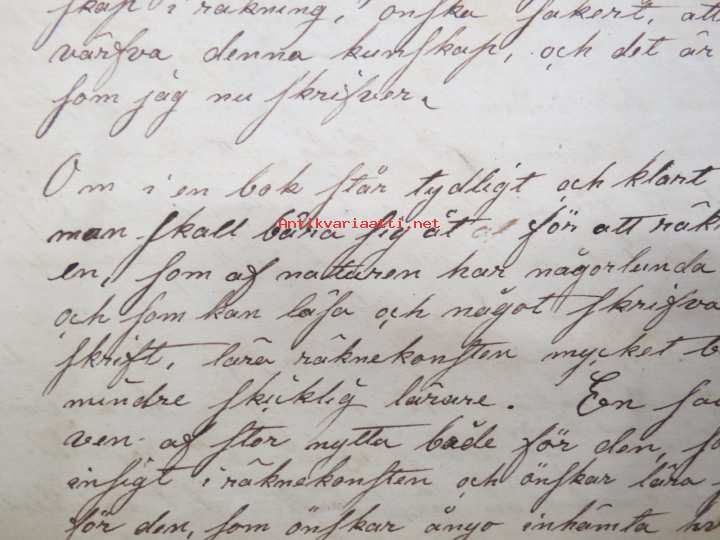 skap i räkning, önska säkert, att
värfva denna kunskap, och det är
som jag nu skrifver.
Om i en bok står tydligt och klart
man skall bära sig åt för att räk
Antikvariaatti.net
en, som af naturen har någorlunda
och som kan läsa och något skrifva
skrift, lära räknekonsten mycket b
mindre skicklig lärare. En så
ven af stor nytta både för den, s
insigt i räknekonsten och önskar lära
för den, som önskar ånyo inhämta hv